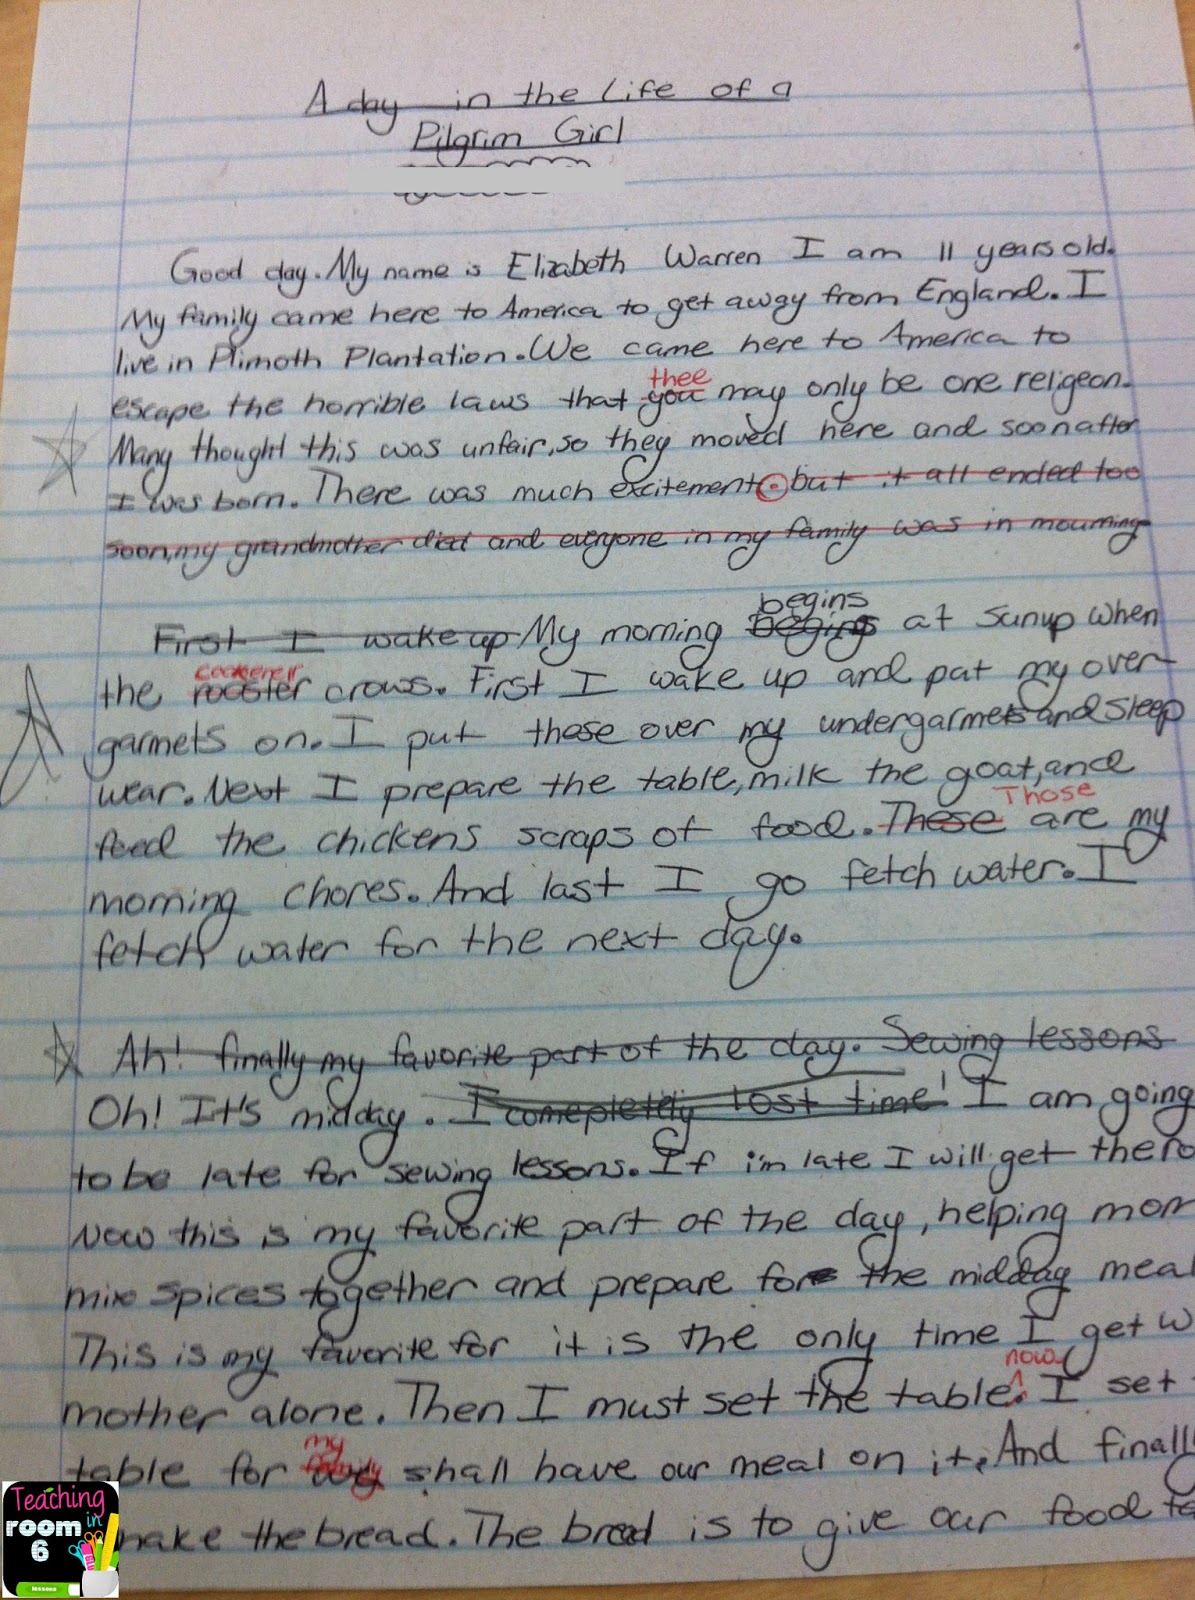 A day in the Life of a
Pilgrim Girl
Good day. My name is Elizabeth Warren I am 11 years old.
My family came here to America to get away from England. I
live in Plimoth Plantation. We came here to America to
thee
escape the horrible laws that you may only be one religeon.
Many thought this was unfair, so they moved here and soon after
I was born. There was much excitement. but it all ended too
soon, my grandmother died and everyone in my family was in mourning
begins
First I wake up My morning begins at sunup when
cockerell
the rooster crows. First I wake up and put my over
garmets on. I put these over my undergarmets and sleep
wear. Next I prepare the table, milk the goat, and
Those
feed the chickens scraps of food. These are my
morning chores. And last I go fetch water. I
fetch water for the next day.
Ah! finally my favorite part of the day. Sewing lessons
Oh! It's midday. I comepletely lost time! I am going
to be late for sewing lessons. If i'm late I will get the ro
Now this is my favorite part of the day, helping mom
mix spices together and prepare for the midday meal
This is my favorite for it is the only time I get w
now
mother alone. Then I must set the table. I set
my
table for family shall have our meal on it. And finall
make the bread. The bread is to give our food ta
Teaching
in
room
6
lessons